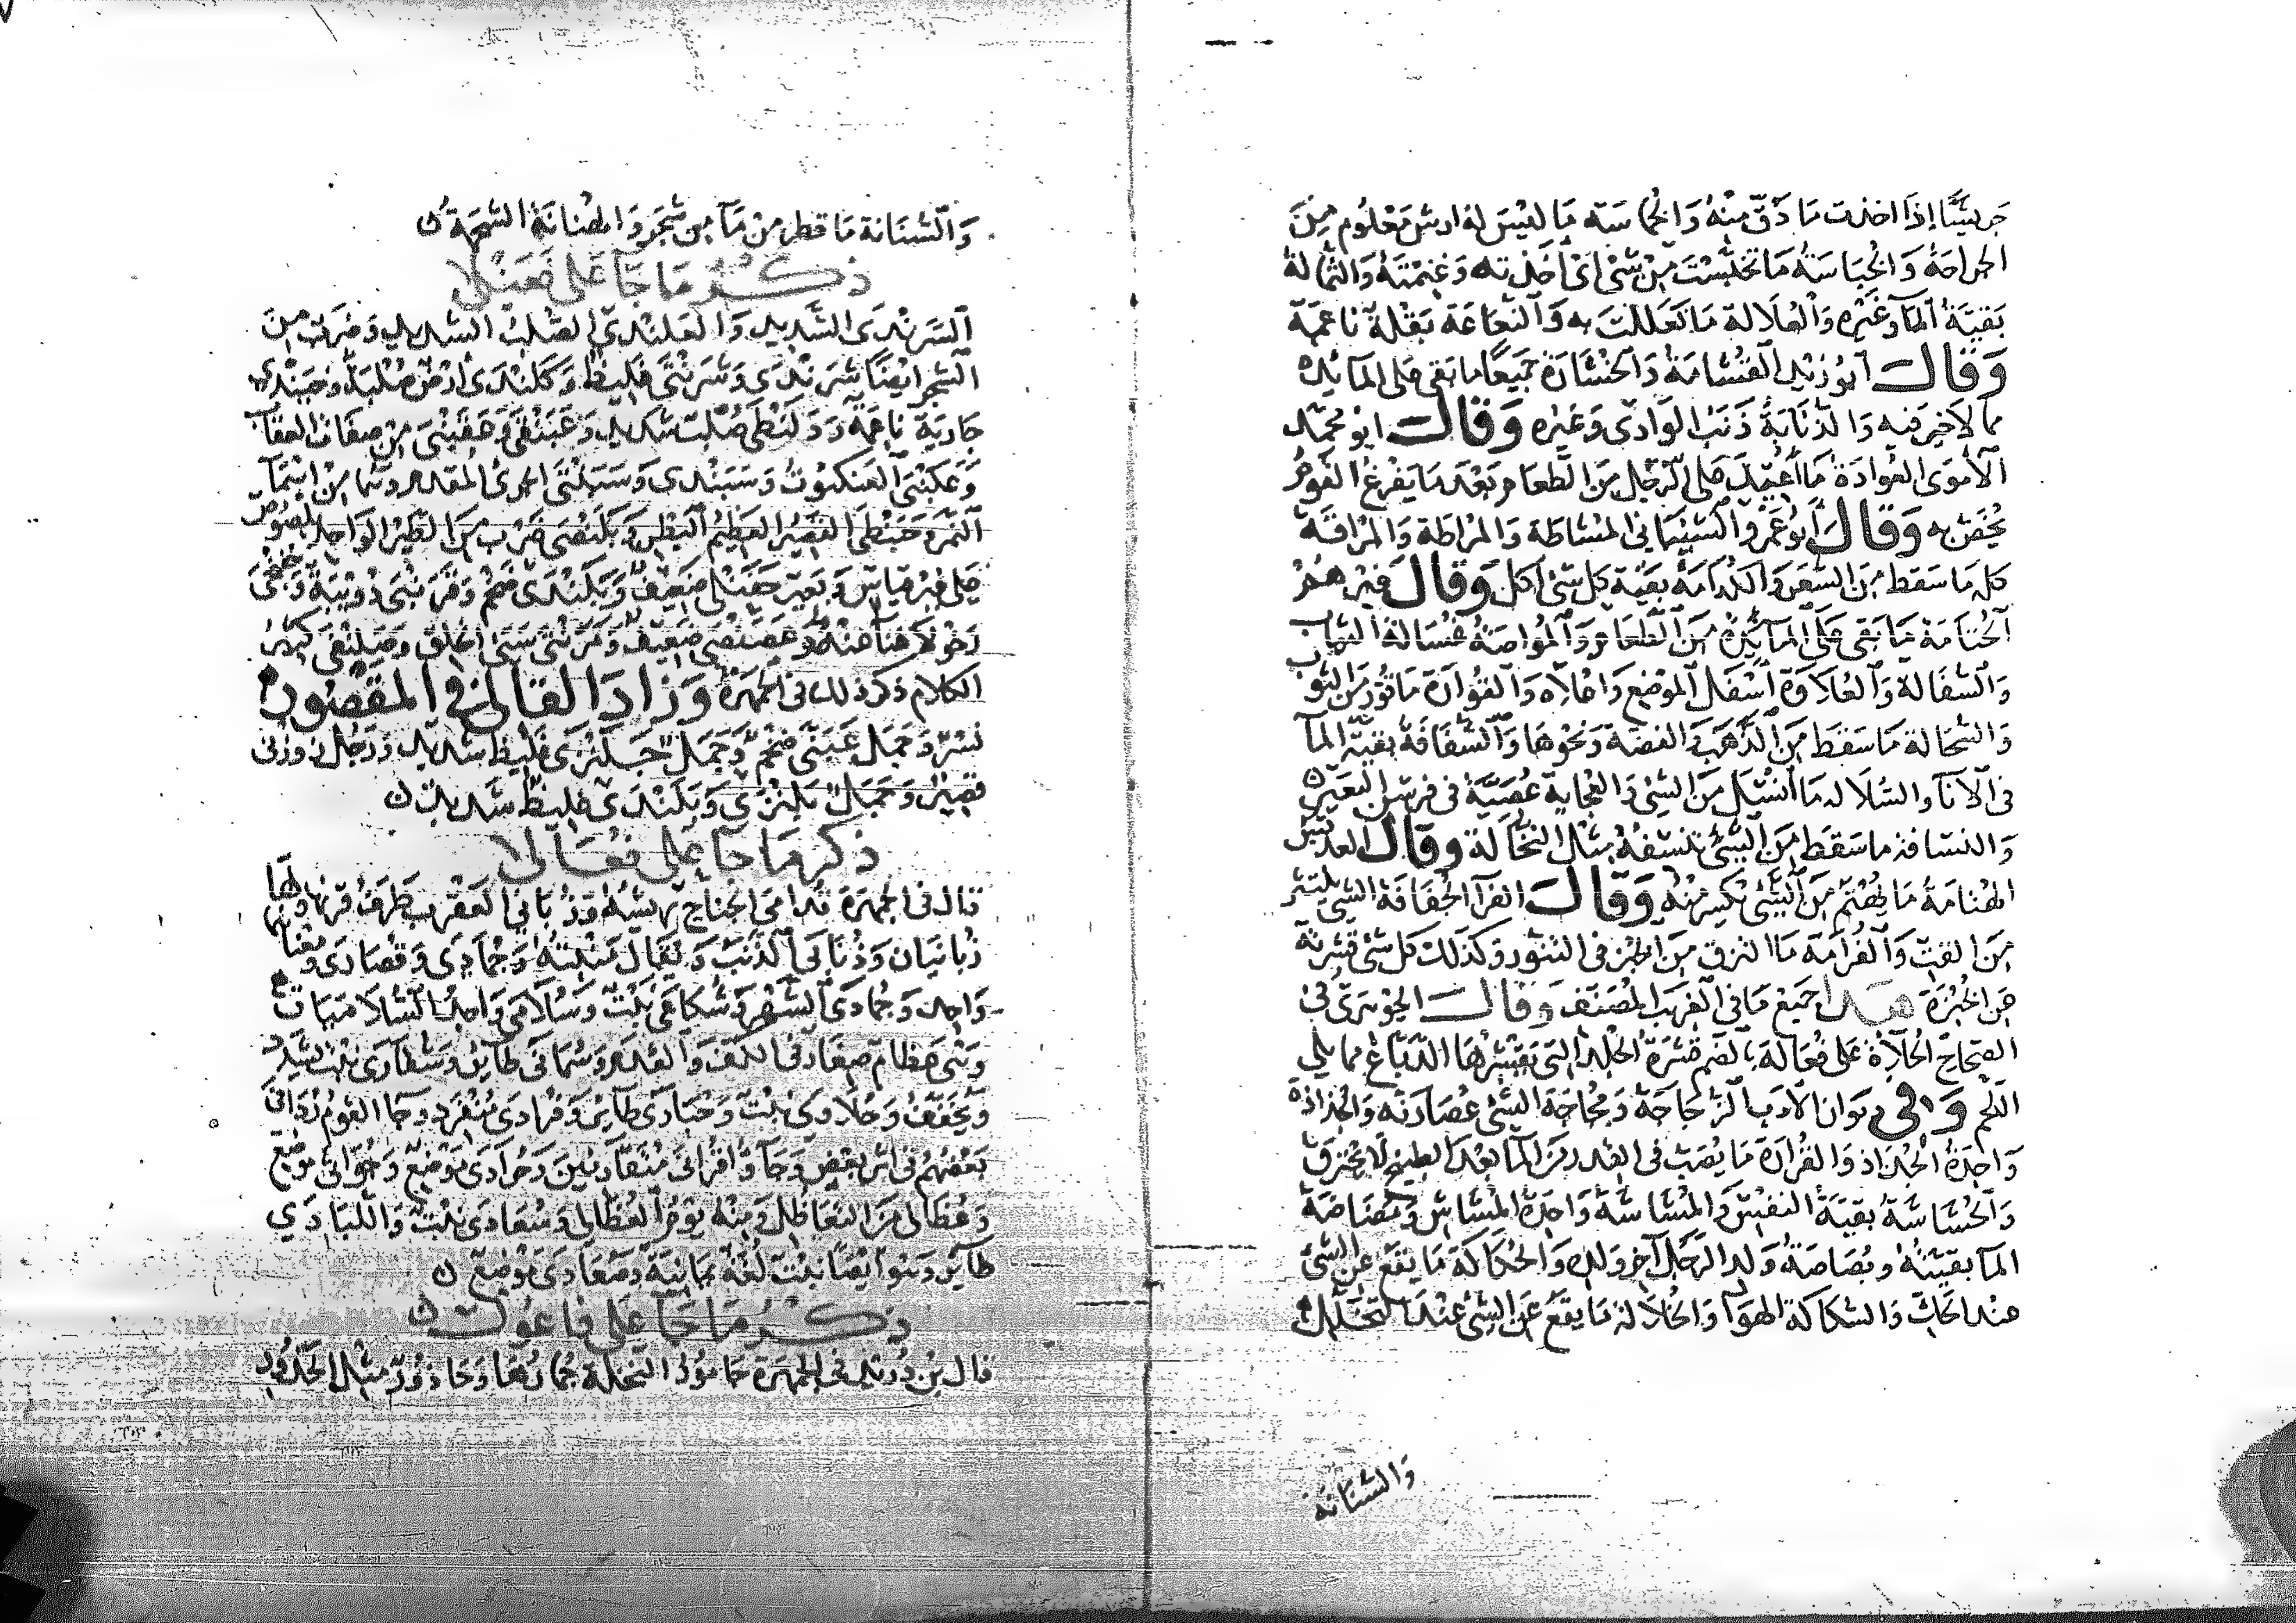 جريشًا إذا اخذت ما دق منه والخماسة ما ليس له ارش معلوم من
الجراحة والخباسة ما تخبست من شي اي اخذته وغنمته والثمالة
بقية الماء وغيره والعلالة ما تعللت به والنعاعة بقلة ناعمة
وقال ابو زيد القشامة والخشارة جميعًا ما بقي على المائدة
مما لا خير فيه والذنابة ذنب الوادي وغيره وقال ابو محمد
الأموي العوادة ما اعيد على الرجل من الطعام بعد ما يفرغ القوم
يخص به وقال ابو عمرو الشيباني المشاطة والمراطة والمراقة
كل ما سقط من الشعر والكدامة بقية كل شي اكل وقال غيرهم
الختامة ما بقي على المائدة من الطعام والمواصة غسالة الثياب
والسفالة والعلاوة اسفل الموضع واعلاه والقوارة ما قور من الثوب
والسحالة ما سقط من الذهب والفضة ونحوها والشفافة بقية الماء
في الآناء والسلالة ما انسل من الشي والعجاية عصبة في فرسن البعير
والنسافة ما سقط من الشئ تنسفه مثل النخالة وقال العدبس
الهنامة ما يهتم من الشئ يكسر منه وقال الفرآ الجفافة الشي ينتثر
من القت والقرامة ما التزق من الخبز في التنور وكذلك كل شي قشرته
عن الخبزة هذا جميع ما في الغريب المصنف وقال الجوهري في
الصحاح الحلاءة على فعالة بالضم قشرة الجلد التي يقشرها الدباغ مما يلي
اللحم وفي ديوان الأدب الزجاجة ومجاجة الشئ عصارته والجذاذة
واحدة الجذاذ والقرارة ما يصب في القدر من الما بعد الطبيخ لا يحترق
والحشاشة بقية النفس والمشاشة واحدة المشاش ومصاصة
الما بقيته ومصاصة ولد الرجل آخر ولده والحكاكة ما يقع عن الشئ
عند الحك والسكاكة الهوآ والخلالة ما يقع عن الشئ عند التخلل
والشنانة
والشنانة ما قطر من مآ من شجر والهنانة الشحمة
ذكر ما جآ على فعنلى
السرندى الشديد والعلندى الصلب الشديد وضرب من
الشجر ايضًا شرندى وشرنتى غليظ وكلندى ارض صلبة وخبندى
جارية ناعمة ودلنظى صلب شديد وعبنقى وعقبنى من صفات العقاب
وعكبنى العنكبوت وسبندى وسبنتى الجرئ المقدم وهما من اسمآ
النمر وحبنطى القصير العظيم البطن وبلنصى ضرب من الطير الواحد بلصوص
على غير قياس وبعير حفنكى ضعيف وبلندى ضخم وقرنبى دويبة
الكلام ذكر ذلك في الجمهرة وزاد القالى في المقصور
نسر وجمل عبنى ضخم وجمل جلنزى غليظ شديد ورجل زونى
قصير وجمل بلنزى وبلندى غليظ شديد
ذكر ما جآ على فعالى
قال في الجمهرة قدامى الجناح ريشه وزبانى العقرب طرف قرنها ولها
زبانيان وذنابى الذنب ويقال منبته وجمادى وقصارى
واحد وجمادى الشهر وشكاعى نبت وسلامى واحد السلاميات
وهي عظام صغار في الكف والقدم وسمانى طاير وشقارى نبت يشدد
ويخفف وحلاوى نبت وحبارى طاير وفرادى منفرد وجآ القوم ردافى
بعضهم في اثر بعض وجآوا قرانى متقاربين وحرادى موضع وجوانى موضع
وعظالى من التعاظل ومنه يوم العظالى وسعادى نبت واللبادي
طاير وهو ايضا نبت لغة يمانية وصعادى موضع
ذكر ما جآ على فاعول
قال بن دريد في الجمهرة جامور النخلة جمارها وحاذور مثل الحذور